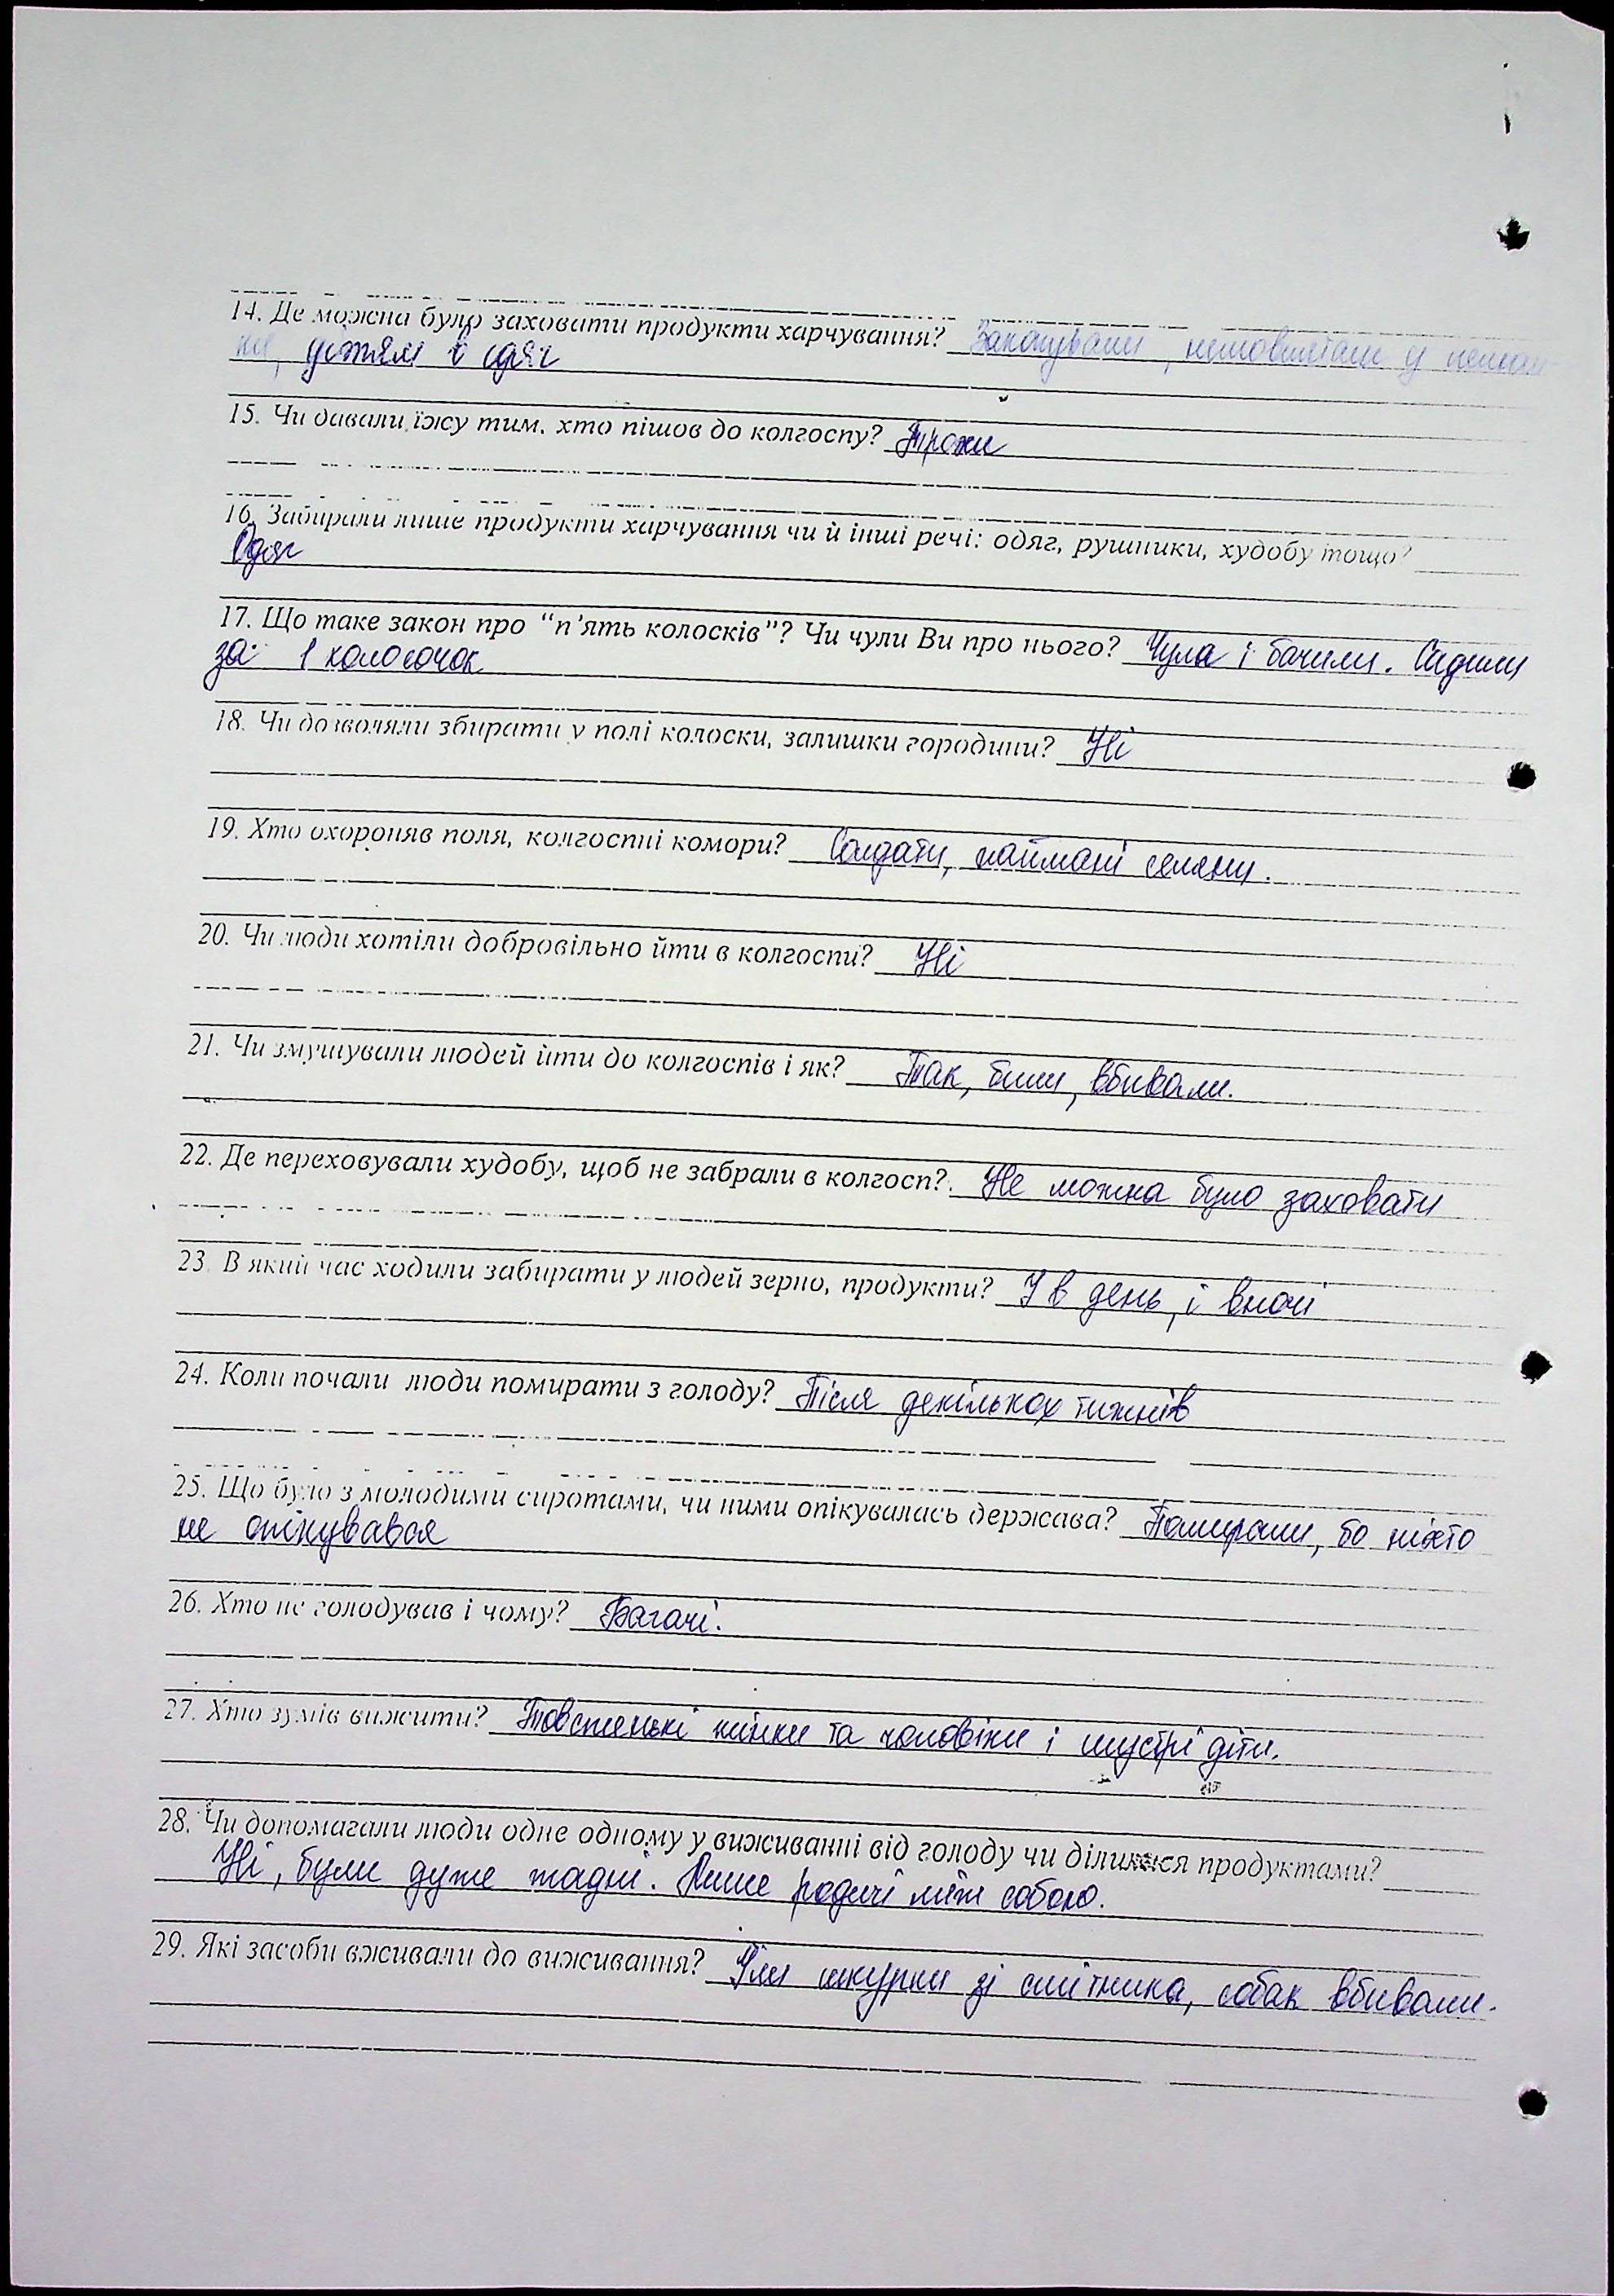 14. Де можна було заховати продукти харчування? Закопували, немовлятам у пелюш-
ки, дітям в одяг
15. Чи давали їжу тим, хто пішов до колгоспу? Трохи
16. Забирали лише продукти харчування чи й інші речі: одяг, рушники, худобу тощо?
Одяг
17. Що таке закон про “п’ять колосків”? Чи чули Ви про нього? Чула і бачили. Садили
за 1 колосочок
18. Чи дозволяли збирати у полі колоски, залишки городини? Ні
19. Хто охороняв поля, колгоспні комори? Солдати, наймані селяни.
20. Чи люди хотіли добровільно йти в колгоспи? Ні
21. Чи змушували людей йти до колгоспів і як? Так, били, вбивали.
22. Де переховували худобу, щоб не забрали в колгосп? Не можна було заховати
23. В який час ходили забирати у людей зерно, продукти? І в день, і вночі
24. Коли почали люди помирати з голоду? Після декількох тижнів
25. Що було з молодими сиротами, чи ними опікувалась держава? Помирали, бо ніхто
не опікувався
26. Хто не голодував і чому? Багачі.
27. Хто зумів вижити? Товстенькі жінки та чоловіки і шустрі діти.
28. Чи допомагали люди одне одному у виживанні від голоду чи ділилися продуктами?
Ні, були дуже жадні. Лише родичі між собою.
29. Які засоби вживали до виживання? Їли шкурки зі смітника, собак вбивали.